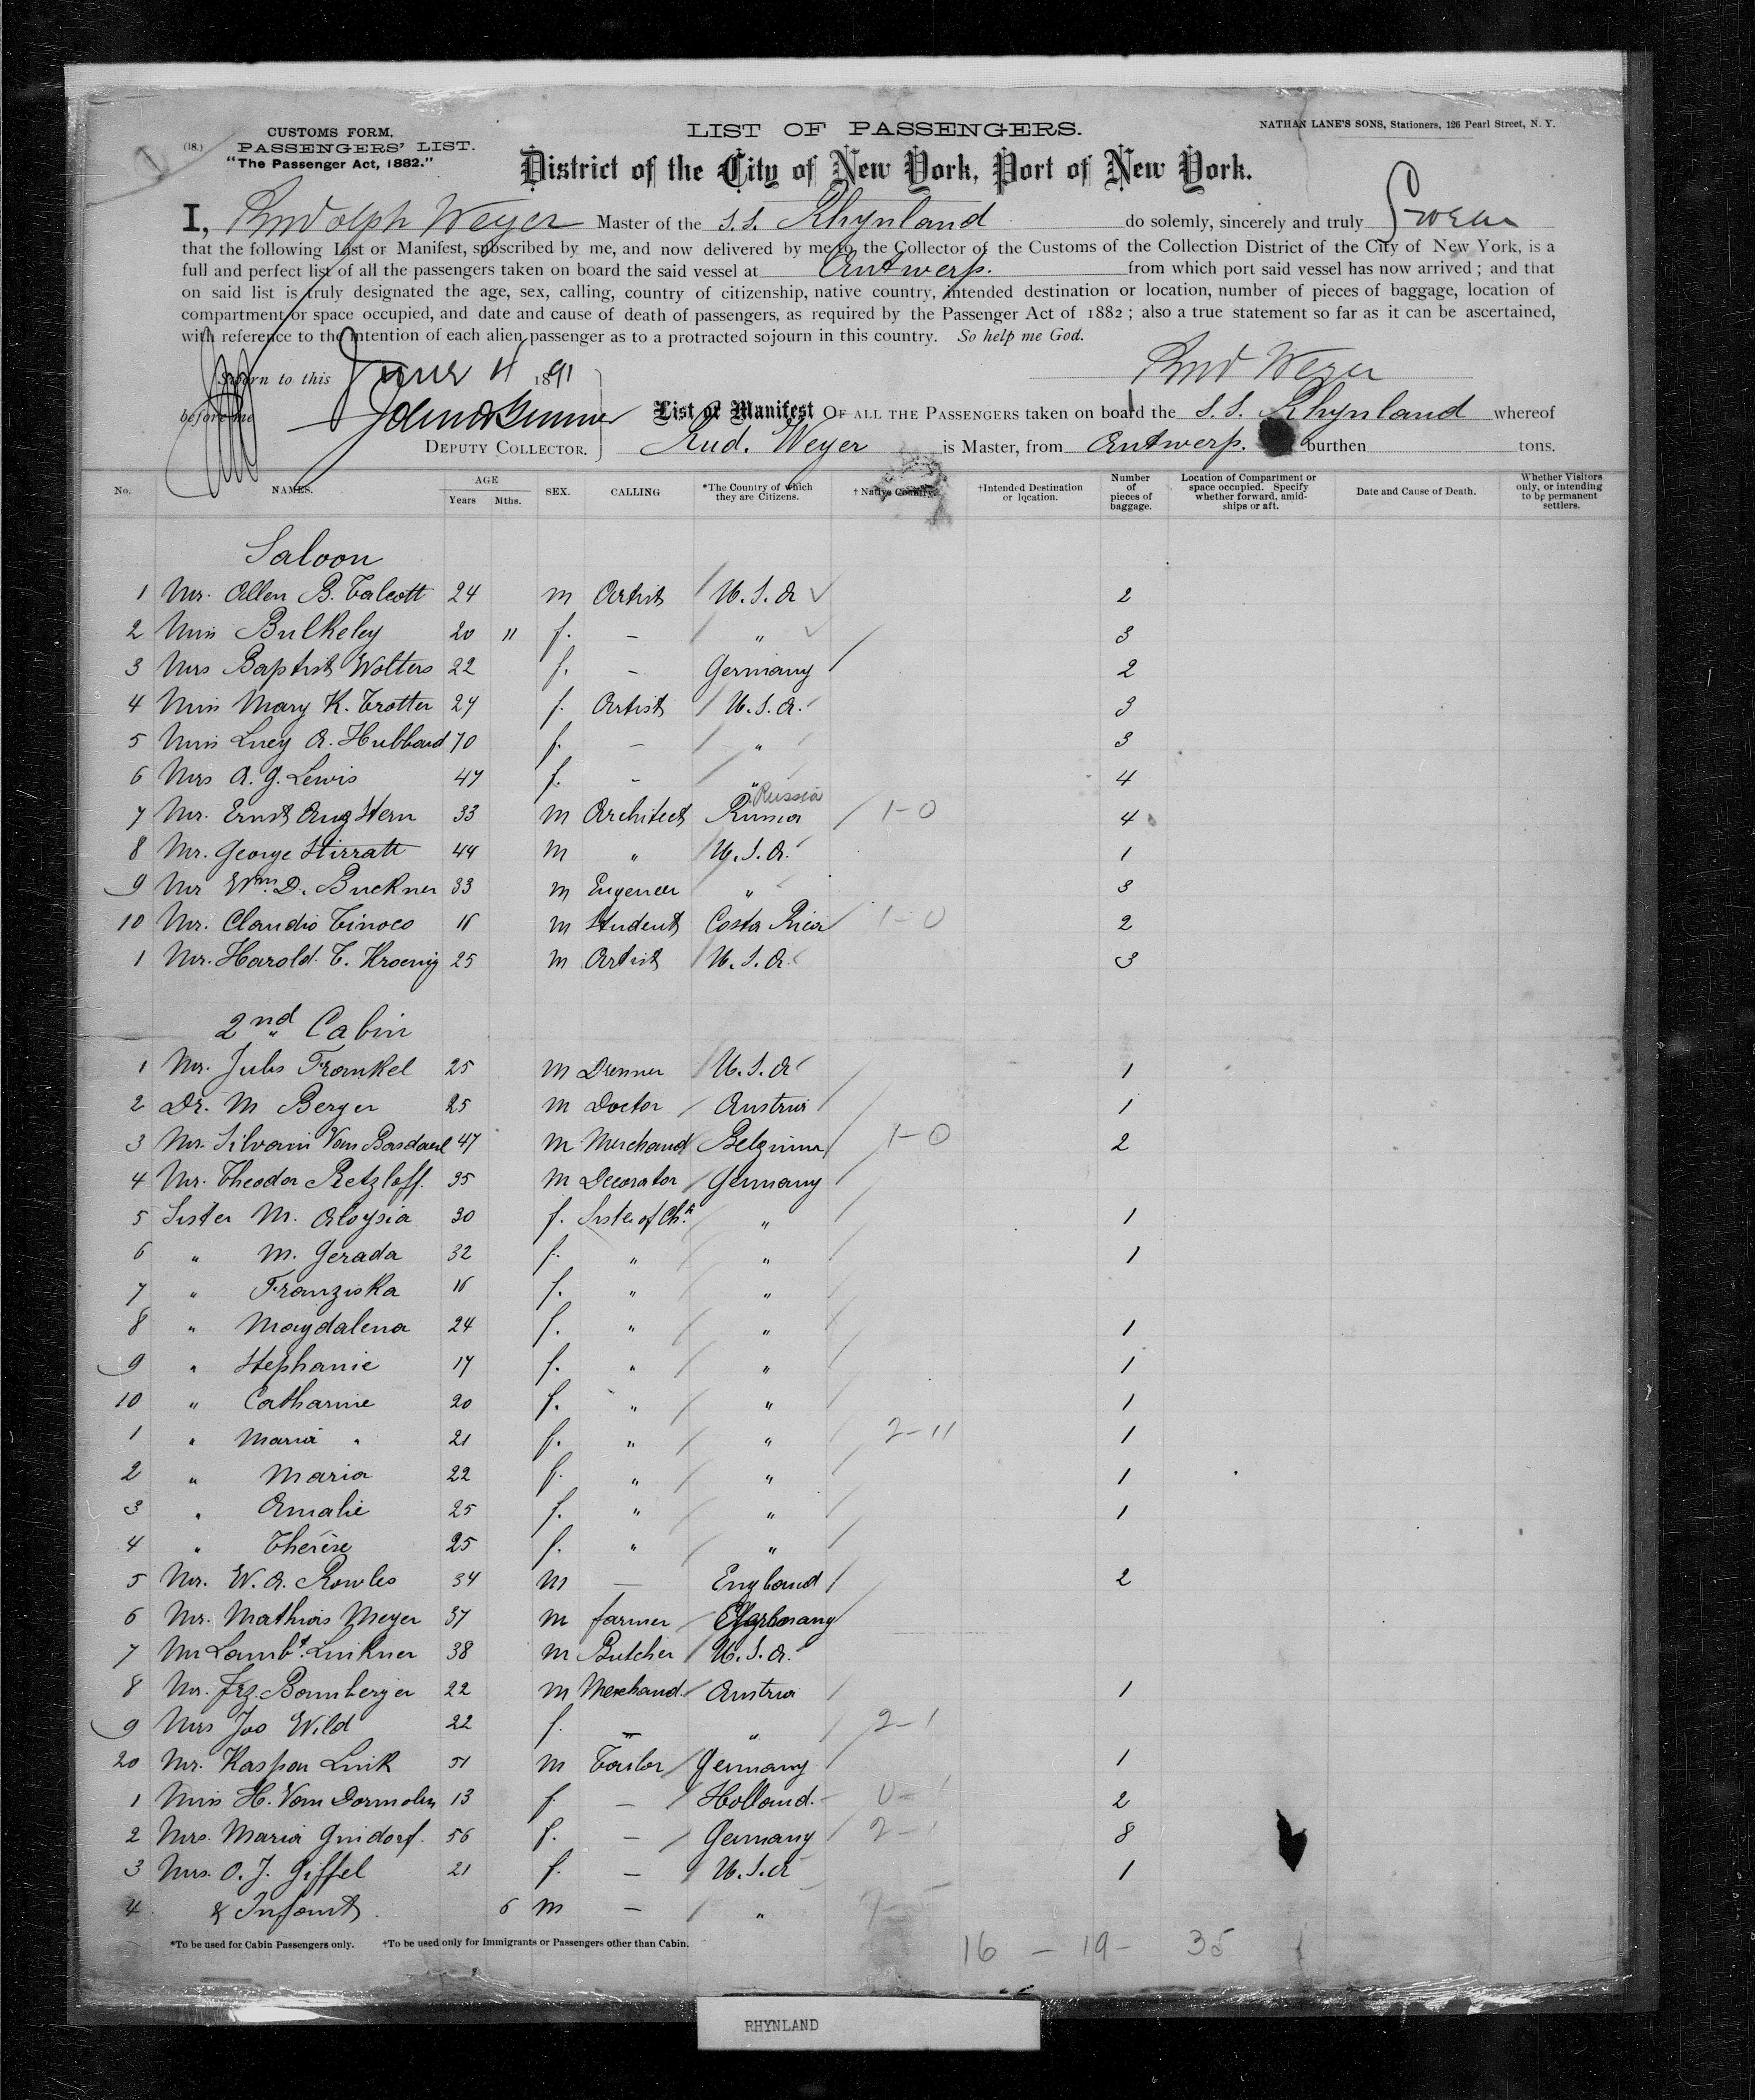 (18.) CUSTOMS FORM.
PASSENGERS' LIST.
"The Passenger Act, 1882."
LIST OF PASSENGERS.
NATHAN LANE'S SONS, Stationers, 126 Pearl Street, N. Y.
District of the City of New York, Port of New York.
I, Rudolph Weyer Master of the S.S. Rhynland do solemnly, sincerely and truly Swear
that the following List or Manifest, subscribed by me, and now delivered by me to the Collector of the Customs of the Collection District of the City of New York, is a
full and perfect list of all the passengers taken on board the said vessel at Antwerp. from which port said vessel has now arrived ; and that
on said list is truly designated the age, sex, calling, country of citizenship, native country, intended destination or location, number of pieces of baggage, location of
compartment or space occupied, and date and cause of death of passengers, as required by the Passenger Act of 1882 ; also a true statement so far as it can be ascertained,
with reference to the intention of each alien passenger as to a protracted sojourn in this country. So help me God.
Sworn to this June 4 1891
Rud Weyer
before me
DEPUTY COLLECTOR.
List or Manifest OF ALL THE PASSENGERS taken on board the S.S. Rhynland whereof
Rud. Weyer is Master, from Antwerp. burthen tons.
No. NAMES. AGE Years Mths. SEX. CALLING *The Country of which they are Citizens. † Native Country. †Intended Destination or location. Number of pieces of baggage. Location of Compartment or space occupied. Specify whether forward, amidships or aft. Date and Cause of Death. Whether Visitors only, or intending to be permanent settlers.
Saloon
1 Mr. Allen B. Talcott 24 m Artist U.S.A 2
2 Miss Bulkeley 20 " f. - " 3
3 Mrs Baptist Wolters 22 f. - Germany 2
4 Miss Mary K. Trotter 24 f. Artist U.S.A. 3
5 Miss Lucy A. Hubbard 70 f. - " 3
6 Mrs A. G. Lewis 47 f. - " 4
7 Mr. Ernst Aug Stern 33 m Architect Russia Russia 1-0 4
8 Mr. George Stirratt 44 m " U.S.A. 1
9 Mr Wm. D. Buckner 33 m Engeneer " 3
10 Mr. Claudio Tinoco 16 m Student Costa Rica 1-0 2
1 Mr. Harold T. Kroenig 25 m Artist U.S.A. 3
2nd Cabin
1 Mr. Juls Frankel 25 m U.S.A 1
2 Dr. M Berger 25 m Doctor Austria 1
3 Mr. Silvain Van 47 m Merchand Belgium 1-0 2
4 Mr. Theodor Retzlaff. 35 m Decorator Germany
5 Sister M. Aloysia 30 f. Sister of Ch. " 1
6 " M. Gerada 32 f. " " 1
7 " Franziska 16 f. " "
8 " Magdalena 24 f. " " 1
9 " Stephanie 17 f. " " 1
10 " Catharine 20 f. " " 1
1 " Maria " 21 f. " " 2-11 1
2 " Maria 22 f. " " 1
3 " Amalie 25 f. " " 1
4 " Therèse 25 f. " "
5 Mr. W. A. Rowles 34 m - England 2
6 Mr. Mathias Meyer 37 m farmer Germany
7 Mr Lambt. Linkner 38 m Butcher U.S.A.
8 Mr. Frz. Bamberger 22 m Merchand. Austria 1
9 Mrs Jos Wild 22 f. - " 2-1
20 Mr. Kaspar Link 51 m Tailor Germany 1
1 Miss H. Van Dormolen 13 f - Holland. 2
2 Mrs. Maria Guidorf. 56 f. - Germany 2-1 8
3 Mrs. O. J. Giffel 21 f. - U.S.A 1
4 & Infant 6 m - "
*To be used for Cabin Passengers only. †To be used only for Immigrants or Passengers other than Cabin.
16 - 19 - 35
RHYNLAND